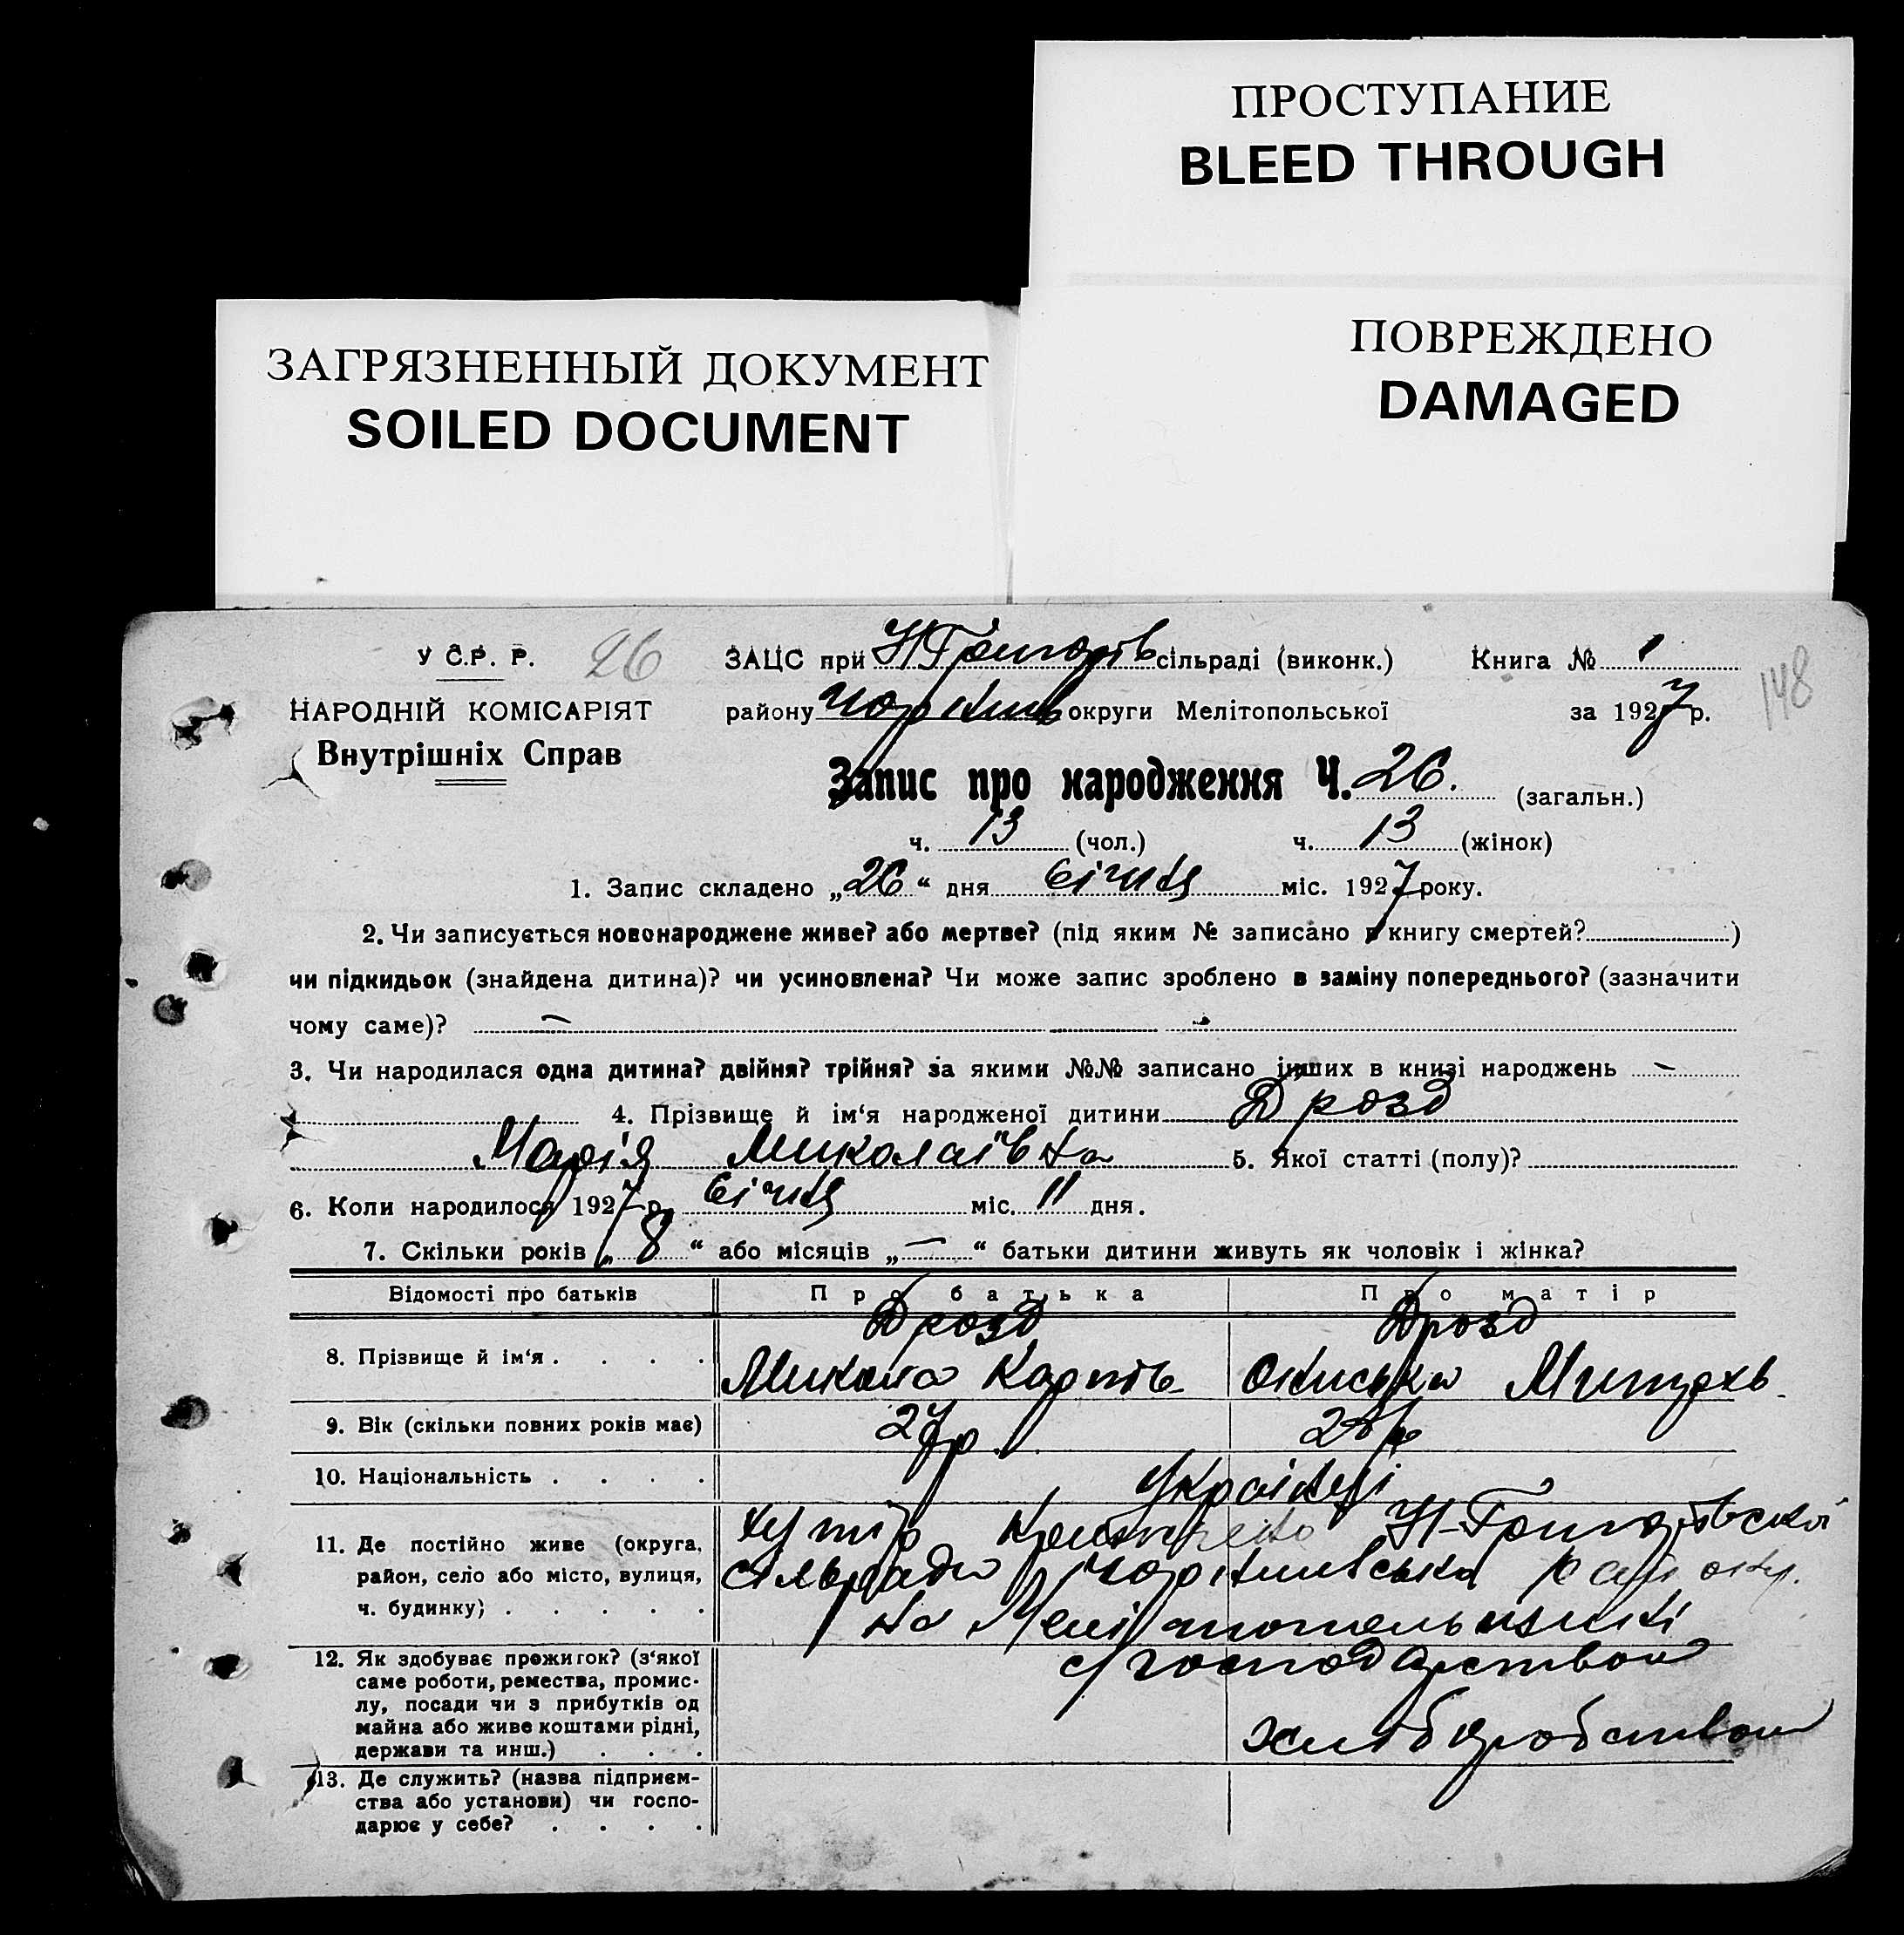 ПРОСТУПАНИЕ
BLEED THROUGH
ЗАГРЯЗНЕННЫЙ ДОКУМЕНТ
SOILED DOCUMENT
ПОВРЕЖДЕНО
DAMAGED
У С.Р. Р. 26 ЗАЦС при сільраді (виконк.) Книга № 1
148
НАРОДНІЙ КОМІСАРІЯТ району округи Мелітопольської за 1927 р.
Внутрішніх Справ
Запис про народження Ч. 26. (загальн.)
ч. 13 (чол.) ч. 13 (жінок)
1. Запис складено „26“ дня січня міс. 1927 року.
2. Чи записується новонароджене живе? або мертве? (під яким № записано в книгу смертей? )
чи підкидьок (знайдена дитина)? чи усиновлена? Чи може запис зроблено в заміну попереднього? (зазначити
чому саме)? —
3. Чи народилася одна дитина? двійня? трійня? за якими №№ записано інших в книзі народжень —
4. Прізвище й ім‘я народженої дитини Дрозд
Марія Миколаївна 5. Якої статті (полу)?
6. Коли народилося 1927 р. січня міс. 11 дня.
7. Скільки років „8“ або місяців „—“ батьки дитини живуть як чоловік і жінка?
Відомості про батьків Про батька Про матір
Дрозд Дрозд
8. Прізвище й ім‘я . . . . Микола Карпів
9. Вік (скільки повних років має) 27 р.
10. Національність . . . . Українці
11. Де постійно живе (округа, хутір
район, село або місто, вулиця, сільради
ч. будинку) . . . . . на
12. Як здобуває прожиток? (з‘якої с/господарством
саме роботи, ремества, промис-
лу, посади чи з прибутків од
майна або живе коштами рідні, хліборобством
держави та инш.) . . .
13. Де служить? (назва підприєм-
ства або установи) чи госпо-
дарює у себе? . . . .